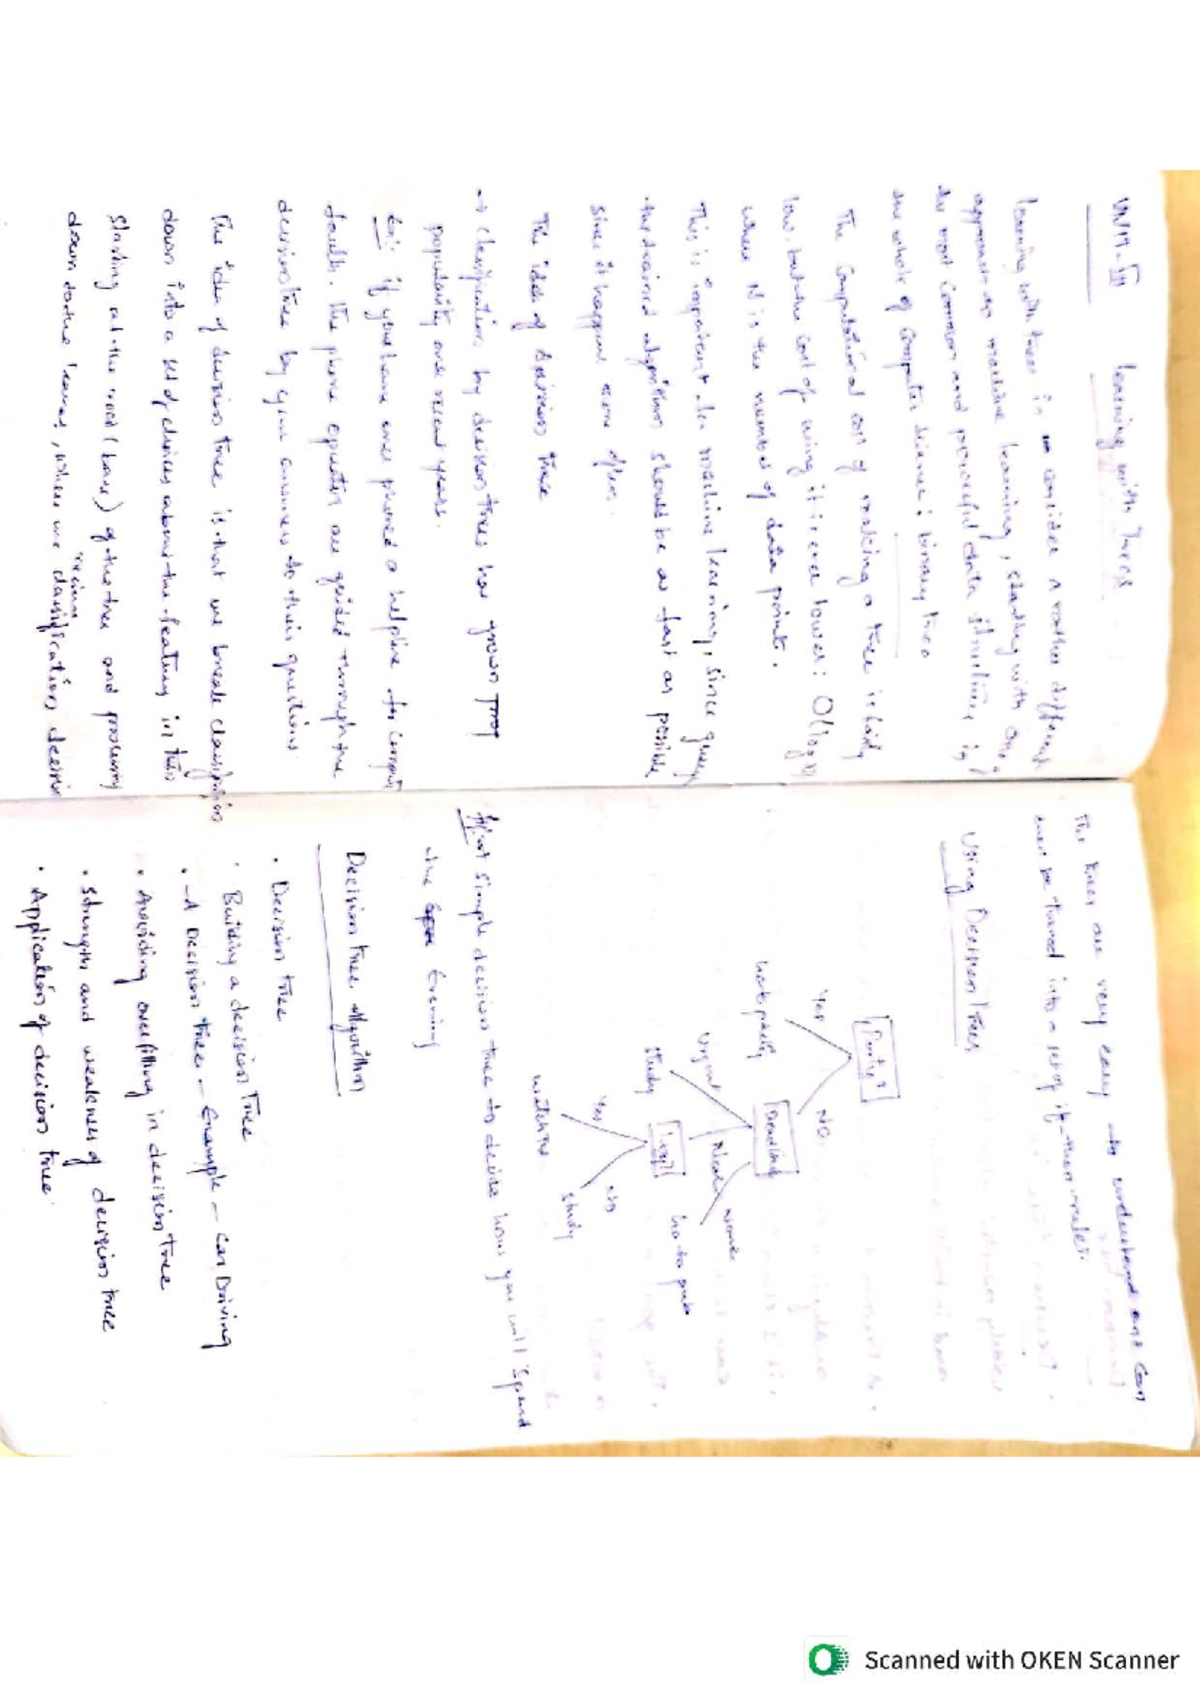 Unit-III Learning with Trees
Learning with trees is consider a rather different
approach to machine learning, starting with one of
the most common and powerful data structures in
the whole of computer science: binary tree
The Computational cost of making a tree is fairly
low, but the cost of using it is even lower: O(log N)
where N is the number of data points.
This is important for machine learning, since query
the trained algorithm should be as fast as possible
since it happens more often.
The idea of decision tree
→ classification by decision trees has grown
popularity over recent years.
Ex: if you have ever phoned a helpline for computer
faults. The phone operator are guided through the
decision tree by your answers to their questions
The idea of decision tree is that we break classification
down into a set of choices about the feature in turn
starting at the root (base) of the tree and
down to the leaves, where we receive classification decision
The trees are very easy to understand and can
even be turned into a set of if-then rules.
Using Decision Trees
Party?
Yes
No
Go to party
Deadline
Urgent
Near
None
Study
Lazy?
Go to pub
Yes
No
Watch TV
Study
A simple decision tree to decide how you will spend
the Evening
Decision tree Algorithm
• Decision tree
• Building a decision Tree
• A Decision Tree - Example - Car Driving
• Avoiding overfitting in decision tree
• Strengths and weakness of decision tree
• Application of decision tree.
Scanned with OKEN Scanner